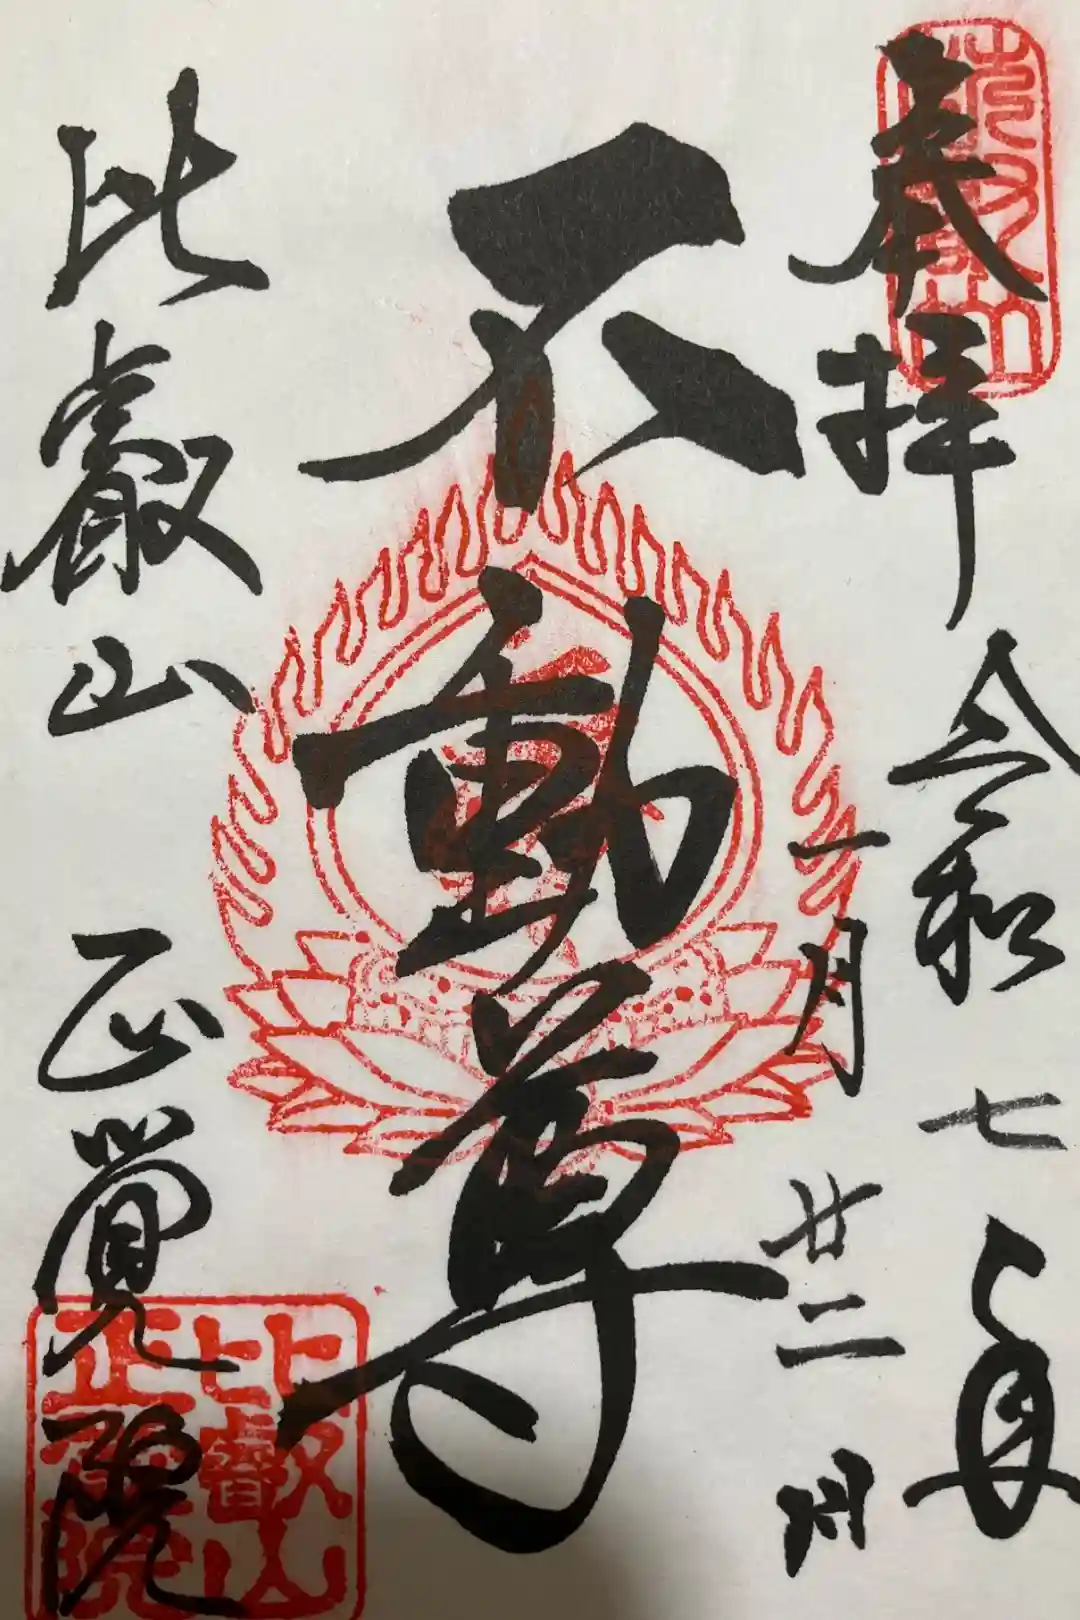 奉拝
令和七年
一月廿二日
不動尊
比叡山 正覺院
比叡山
正覺院